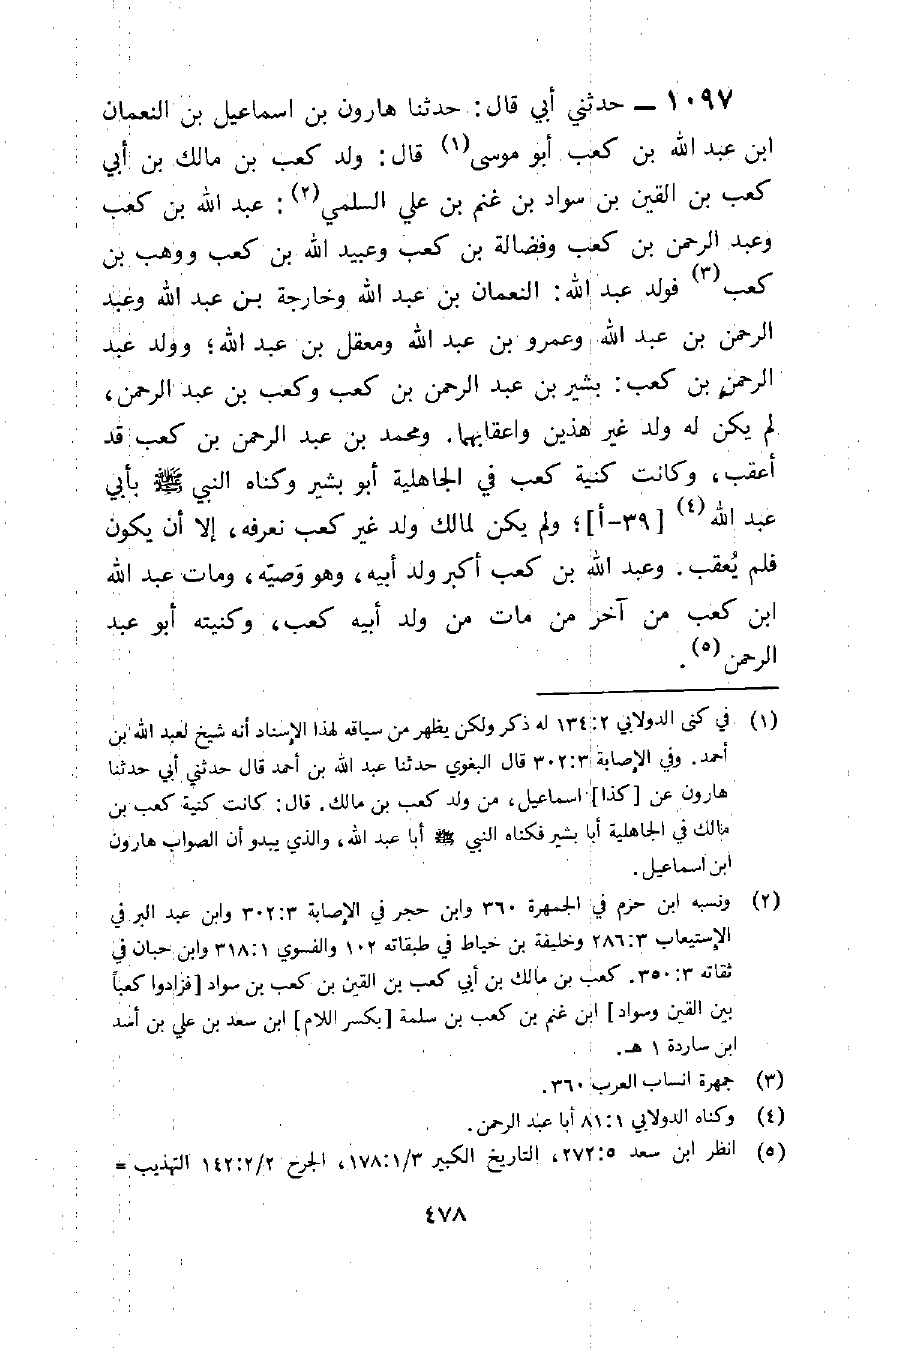 ١٠٩٧ ــ حدثني أبي قال: حدثنا هارون بن اسماعيل بن النعمان
ابن عبد الله بن كعب أبو موسى(١) قال: ولد كعب بن مالك بن أبي
كعب بن القين بن سواد بن غنم بن علي السلمي(٢): عبد الله بن كعب
وعبد الرحمن بن كعب وفضالة بن كعب وعبيد الله بن كعب ووهب بن
كعب(٣) فولد عبد الله: النعمان بن عبد الله وخارجة بن عبد الله وعبد
الرحمن بن عبد الله وعمرو بن عبد الله ومعقل بن عبد الله؛ وولد عبد
الرحمن بن كعب: بشير بن عبد الرحمن بن كعب وكعب بن عبد الرحمن،
لم يكن له ولد غير هذين واعقابهما. ومحمد بن عبد الرحمن بن كعب قد
أعقب، وكانت كنية كعب في الجاهلية أبو بشير وكناه النبي ﷺ بأبي
عبد الله(٤) [٣٩-أ]؛ ولم يكن لمالك ولد غير كعب نعرفه، إلا أن يكون
فلم يُعقب. وعبد الله بن كعب أكبر ولد أبيه، وهو وَصيّه، ومات عبد الله
ابن كعب من آخر من مات من ولد أبيه كعب، وكنيته أبو عبد
الرحمن(٥).
(١) في كنى الدولابي ١٣٤:٢ له ذكر ولكن يظهر من سياقه لهذا الإسناد أنه شيخ لعبد الله بن
أحمد. وفي الإصابة ٣٠٢:٣ قال البغوي حدثنا عبد الله بن أحمد قال حدثني أبي حدثنا
هارون عن [كذا] اسماعيل، من ولد كعب بن مالك. قال: كانت كنية كعب بن
مالك في الجاهلية أبا بشير فكناه النبي ﷺ أبا عبد الله، والذي يبدو أن الصواب هارون
ابن اسماعيل.
(٢) ونسبه ابن حزم في الجمهرة ٣٦٠ وابن حجر في الإصابة ٣٠٢:٣ وابن عبد البر في
الإستيعاب ٢٨٦:٣ وخليفة بن خياط في طبقاته ١٠٢ والفسوي ٣١٨:١ وابن حبان في
ثقاته ٣٥٠:٣. كعب بن مالك بن أبي كعب بن القين بن كعب بن سواد [فزادوا كعباً
بين القين وسواد] ابن غنم بن كعب بن سلمة [بكسر اللام] ابن سعد بن علي بن أسد
ابن ساردة ١ هـ.
(٣) جمهرة انساب العرب ٣٦٠.
(٤) وكناه الدولابي ٨١:١ أبا عبد الرحمن.
(٥) انظر ابن سعد ٢٧٢:٥، التاريخ الكبير ١٧٨:١/٣، الجرح ١٤٢:٢/٢ التهذيب =
٤٧٨